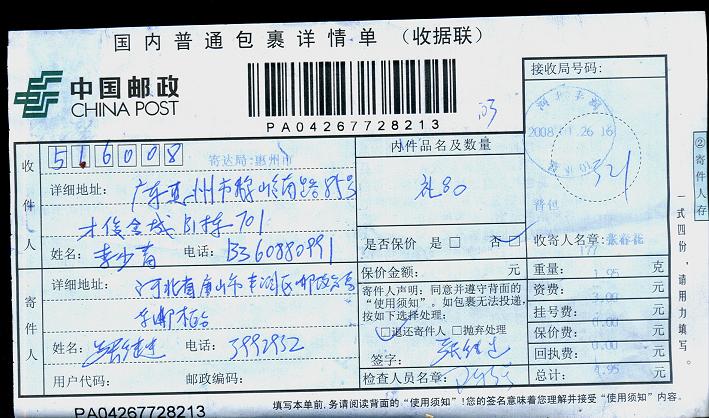 国内普通包裹详情单 (收据联)
中国邮政
CHINA POST
PA04267728213
接收局号码:
2008 1 26 16
收件人
516008
寄达局:惠州市
内件品名及数量
礼80
详细地址: 广东惠州市 岭南路85号
俊金城B1栋701
姓名: 李少菊 电话: 13360880991
是否保价 是□ 否□
收寄人名章: 张春花
寄件人
详细地址: 河北省唐山市丰润区邮政局
姓名: 张继进 电话: 3992952
用户代码: 邮政编码:
保价金额: 元
寄件人声明:同意并遵守背面的
"使用须知"。如包裹无法投递,
按如下选择处理:
□退还寄件人 □抛弃处理
签字: 张继进
检查人员名章:
重量: 1.95 克
资费: 3.00 元
挂号费: 0.00 元
保价费: 0.00 元
回执费: 0.00 元
总计: 4.95 元
②寄件人存
一式四份,请用力填写。
填写本单前,务请阅读背面的"使用须知"!您的签名意味着您理解并接受"使用须知"内容.
PA04267728213